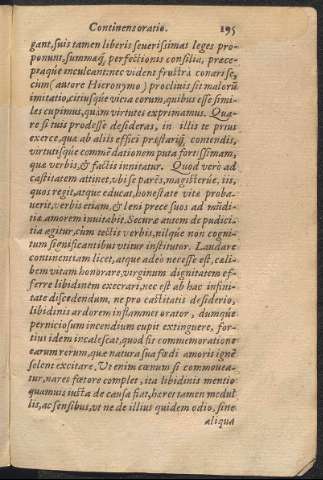 Continens oratio. 195
gant, suis tamen liberis seuerissimas leges pro-
ponunt, summaq́; perfectionis consilia, præce-
ptaque inculcant: nec vident frustrà conari se,
cùm (autore Hieronymo) procliuis sit malorũ
imitatio, citiusque vicia eorum, quibus esse simi-
les cupimus, quàm virtutes exprimamus. Qua-
re si tuis prodesse desideras, in illis te prius
exerce, quæ ab aliis effici præstariq́; contendis,
virtutisque commẽdationem puta fortissimam,
quæ verbis, & factis innitatur. Quod verò ad
castitatem attinet, vbi se parẽs, magistérue, iis,
quos regit, atque educat, honestate vitæ proba-
uerit, verbis etiam, & leni prece suos ad mũdi-
tiæ amorem inuitabit. Securæ autem de pudici-
tia agitur, cùm tectis verbis, nilque non cogni-
tum significantibus vtitur institutor. Laudare
continentiam licet, atque adeò necesse est, cæli-
bem vitam honorare, virginum dignitatem ef-
ferre libidinem execrari, nec est ab hac infini-
tate discedendum, ne pro castitatis desiderio,
libidinis ardorem inflammet orator, dumque
perniciosum incendium cupit extinguere, for-
tius idem incalescat, quod sit commemoratione
earum rerum, quæ natura sua fœdi amoris ignẽ
solent excitare. Vt enim cœnum si commouea-
tur, nares fœtore complet, ita libidinis mentio
quamuis iusta de causa fiat, hæret tamen medul
lis, ac sensibus, vt ne de illius quidem odio, sine
aliqua